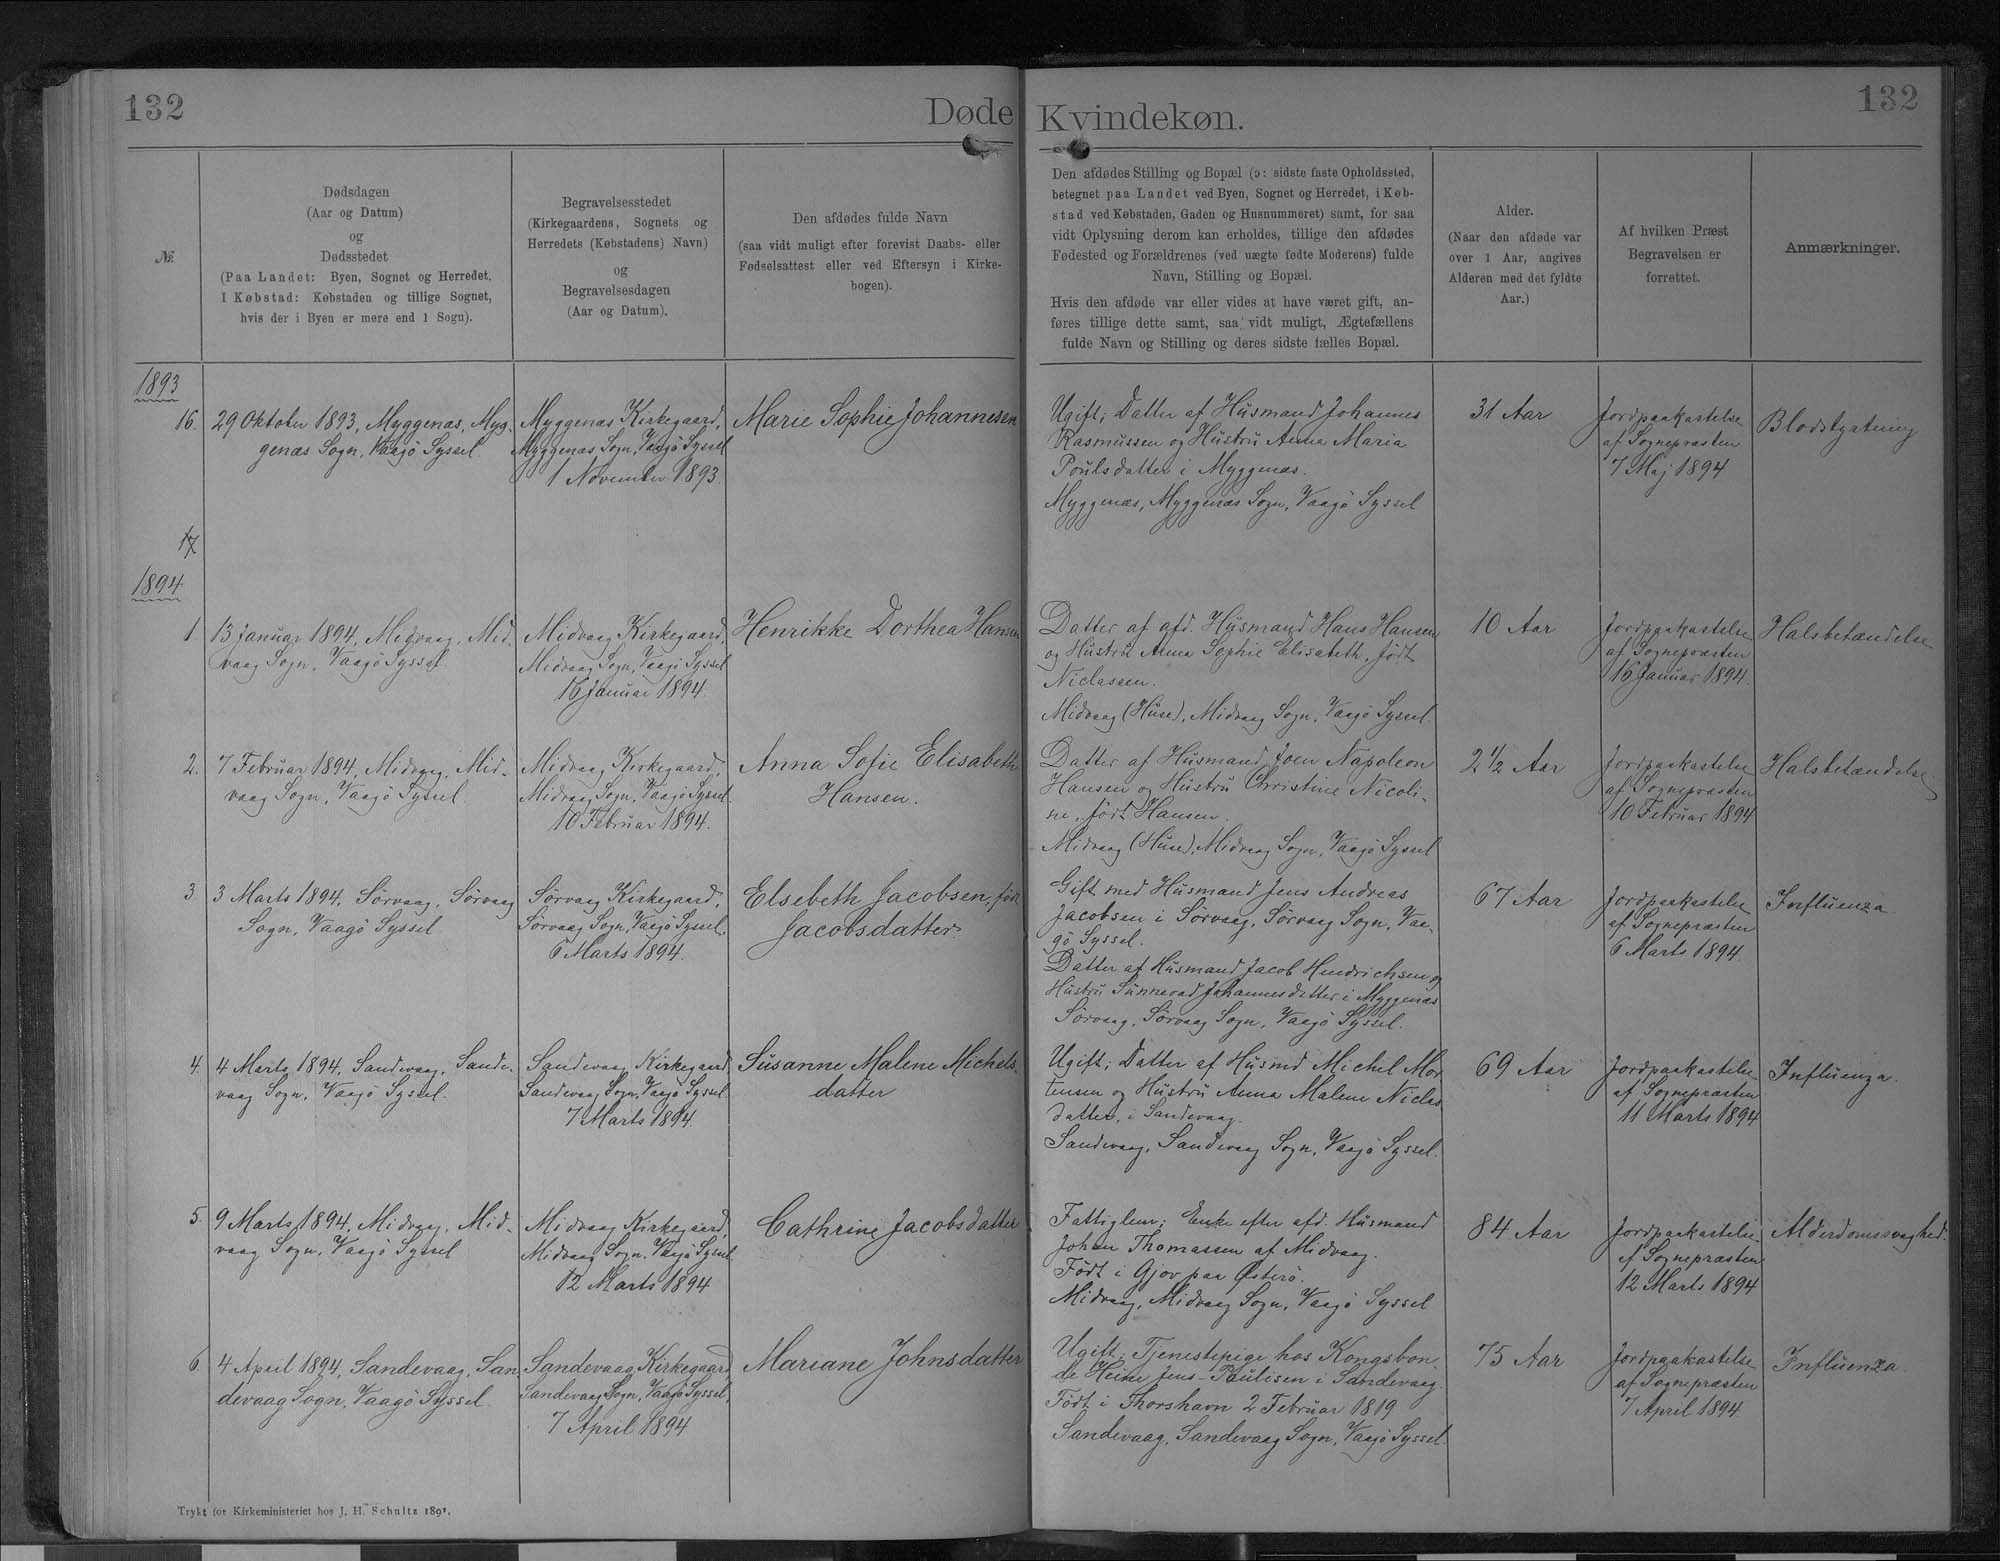 132
Døde
Kvindekøn.
132
№
Dødsdagen
(Aar og Datum)
og
Dødsstedet
(Paa Landet: Byen, Sognet og Herredet.
I Købstad: Købstaden og tillige Sognet,
hvis der i Byen er mere end 1 Sogn).
Begravelsesstedet
(Kirkegaardens, Sognets og
Herredets (Købstadens) Navn)
og
Begravelsesdagen
(Aar og Datum).
Den afdødes fulde Navn
(saa vidt muligt efter forevist Daabs- eller
Fødselsattest eller ved Eftersyn i Kirke-
bogen).
Den afdødes Stilling og Bopæl (ɔ: sidste faste Opholdssted,
betegnet paa Landet ved Byen, Sognet og Herredet, i Køb-
stad ved Købstaden, Gaden og Husnummeret) samt, for saa
vidt Oplysning derom kan erholdes, tillige den afdødes
Fødested og Forældrenes (ved uægte fødte Moderens) fulde
Navn, Stilling og Bopæl.
Hvis den afdøde var eller vides at have været gift, an-
føres tillige dette samt, saa vidt muligt, Ægtefællens
fulde Navn og Stilling og deres sidste fælles Bopæl.
Alder.
(Naar den afdøde var
over 1 Aar, angives
Alderen med det fyldte
Aar.)
Af hvilken Præst
Begravelsen er
forrettet.
Anmærkninger.
1893
16.
29 Oktober 1893, Myggenæs, Myg-
genæs Sogn, Vaagö Syssel
Myggenæs Kirkegaard,
Myggenæs Sogn, Vaagö Syssel
1 November 1893.
Marie Sophie Johannesen
Ugift; Datter af Husmand Johannes
Rasmussen og Hustru Anna Maria
Poulsdatter i Myggenæs.
Myggenæs, Myggenæs Sogn, Vaagö Syssel
31 Aar
Jordpaakastelse
af Sognepræsten
7 Maj 1894
Blodstyrtning
17
1894
1.
13 Januar 1894, Midvaag, Mid-
vaag Sogn, Vaagö Syssel.
Midvaag Kirkegaard,
Midvaag Sogn, Vaagö Syssel
16 Januar 1894.
Henrikke Dorthea Hansen
Datter af afd. Husmand Hans Hansen
og Hustru Anna Sophie Elisabeth, født
Niclassen.
Midvaag (Huse), Midvaag Sogn, Vaagö Syssel.
10 Aar
Jordpaakastelse
af Sognepræsten
16 Januar 1894.
Halsbetændelse
2.
7 Februar 1894, Midvaag, Mid-
vaag Sogn, Vaagö Syssel
Midvaag Kirkegaard,
Midvaag Sogn, Vaagö Syssel.
10 Februar 1894.
Anna Sofie Elisabeth
Hansen.
Datter af Husmand Joen Napoleon
Hansen og Hustru Christine Nicoli-
ne, født Hansen.
Midvaag (Huse), Midvaag Sogn, Vaagö Syssel
2 1/2 Aar
Jordpaakastelse
af Sognepræsten
10 Februar 1894
Halsbetændelse
3.
3 Marts 1894, Sörvaag, Sörvaag
Sogn, Vaagö Syssel
Sörvaag Kirkegaard,
Sörvaag Sogn, Vaagö Syssel.
6 Marts 1894.
Elsebeth Jacobsen, född
Jacobsdatter.
Gift med Husmand Jens Andreas
Jacobsen i Sörvaag, Sörvaag Sogn, Vaa-
gö Syssel.
Datter af Husmand Jacob Hendrichsen og
Hustru Sunnevad Johannesdatter i Myggenæs
Sörvaag, Sörvaag Sogn, Vaagö Syssel.
67 Aar
Jordpaakastelse
af Sognepræsten
6 Marts 1894
Influenza
4.
4 Marts 1894, Sandevaag, Sande-
vaag Sogn, Vaagö Syssel.
Sandevaag Kirkegaard
Sandevaag Sogn, Vaagö Syssel
7 Marts 1894
Susanne Malene Michels-
datter
Ugift; Datter af Husmd Michel Mor
tensen og Hustru Anna Malene Niclas
datter, i Sandevaag.
Sandevaag, Sandevaag Sogn, Vaagö Syssel.
69 Aar
Jordpaakastelse
af Sognepræsten
11 Marts 1894
Influenza.
5.
9 Marts 1894, Midvaag, Mid-
vaag Sogn, Vaagö Syssel
Midvaag Kirkegaard,
Midvaag Sogn, Vaagö Syssel
12 Marts 1894
Cathrine Jacobsdatter
Fattiglem; Enke efter afd. Husmand
Johan Thomassen af Midvaag.
Född i Gjov paa Österö.
Midvaag, Midvaag Sogn, Vaagö Syssel
84 Aar
Jordpaakastelse
af Sognepræsten
12 Marts 1894
Alderdomssvaghed.
6.
4 April 1894, Sandevaag, San
devaag Sogn, Vaagö Syssel.
Sandevaag Kirkegaard
Sandevaag Sogn, Vaagö Syssel,
7 April 1894
Mariane Johnsdatter
Ugift; Tjenestepige hos Kongsbon-
de Heine Jens-Paulisen i Sandevaag.
Född i Thorshavn 2 Februar 1819
Sandevaag, Sandevaag Sogn, Vaagö Syssel.
75 Aar
Jordpaakastelse
af Sognepræsten
7 April 1894
Influenza.
Trykt for Kirkeministeriet hos J. H. Schultz 1891.